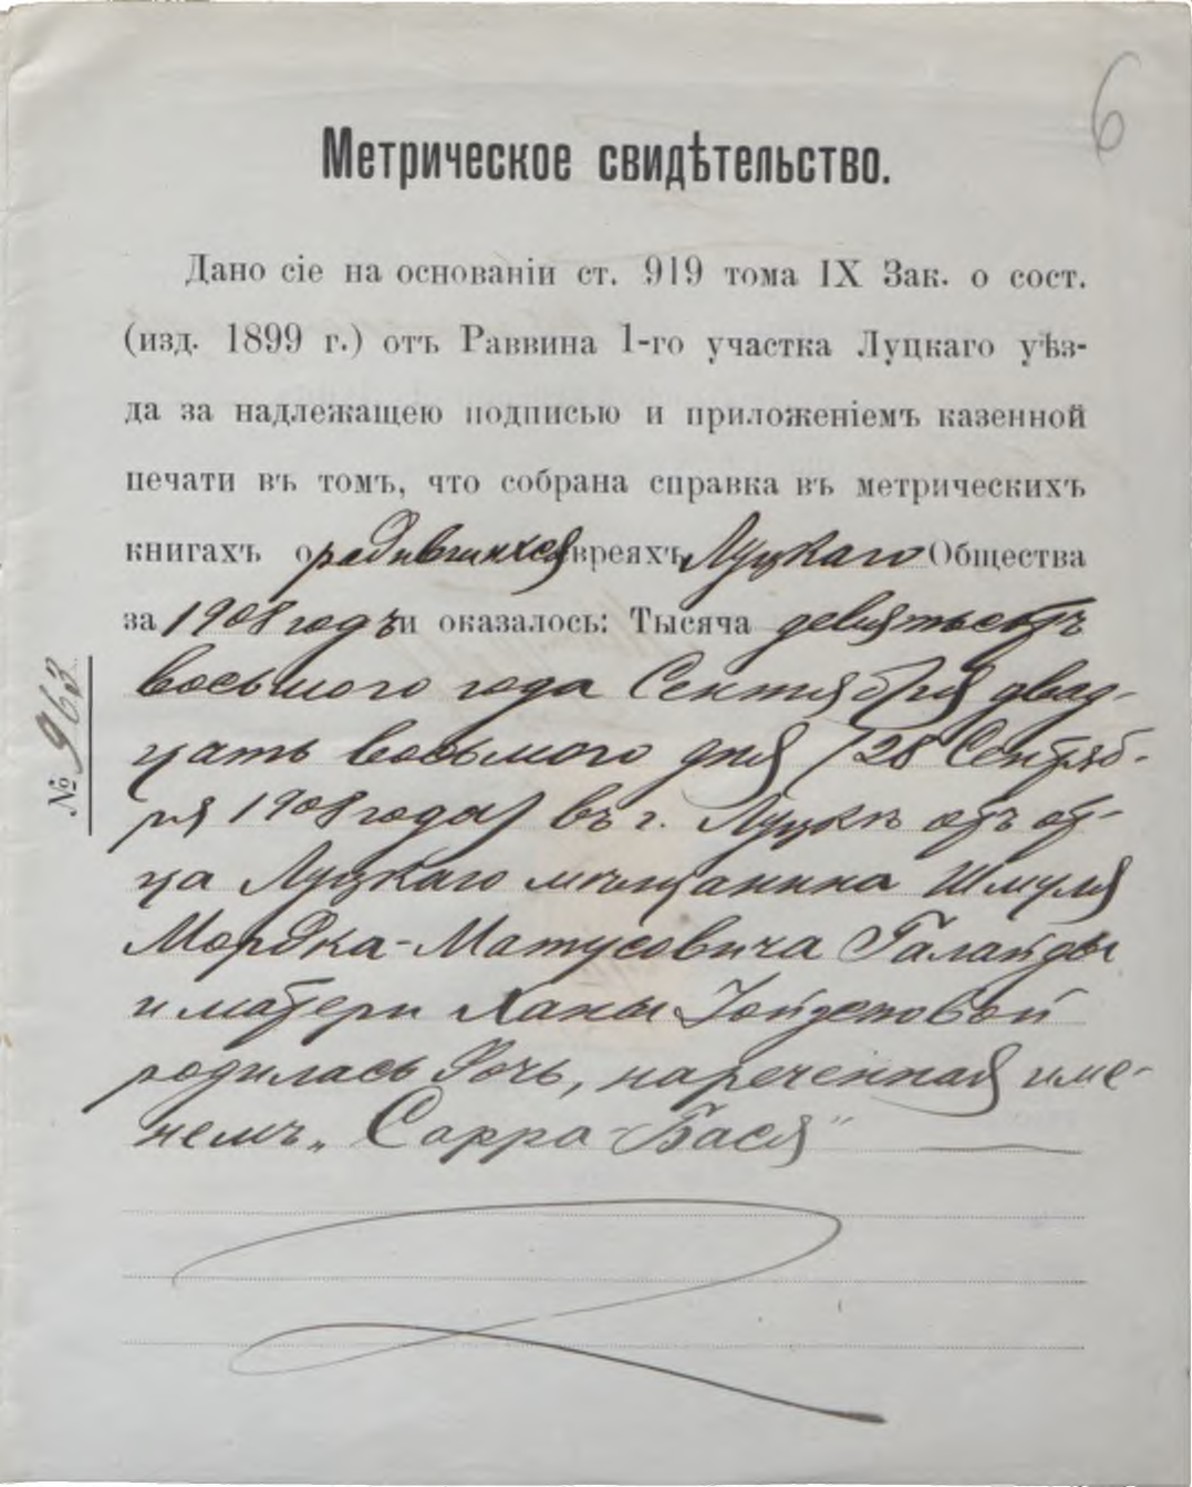 6
Метрическое свидѣтельство.
Дано сіе на основаніи ст. 919 тома IX Зак. о сост.
(изд. 1899 г.) отъ Раввина 1-го участка Луцкаго уѣз-
да за надлежащею подписью и приложеніемъ казенной
печати въ томъ, что собрана справка въ метрическихъ
книгахъ о родившихся евреяхъ Луцкаго Общества
за 1908 годъ и оказалось: Тысяча девятьсотъ
восьмого года Сентября двад-
цать восьмого дня /28 Сентяб-
ря 1908 года/ въ г. Луцкѣ отъ от-
ца Луцкаго мѣщанина Шмуля
Мордка-Матусовича Галайды
и матери Ханы
родилась дочь, нареченная име-
немъ „Сарра-Бася"
№ 963